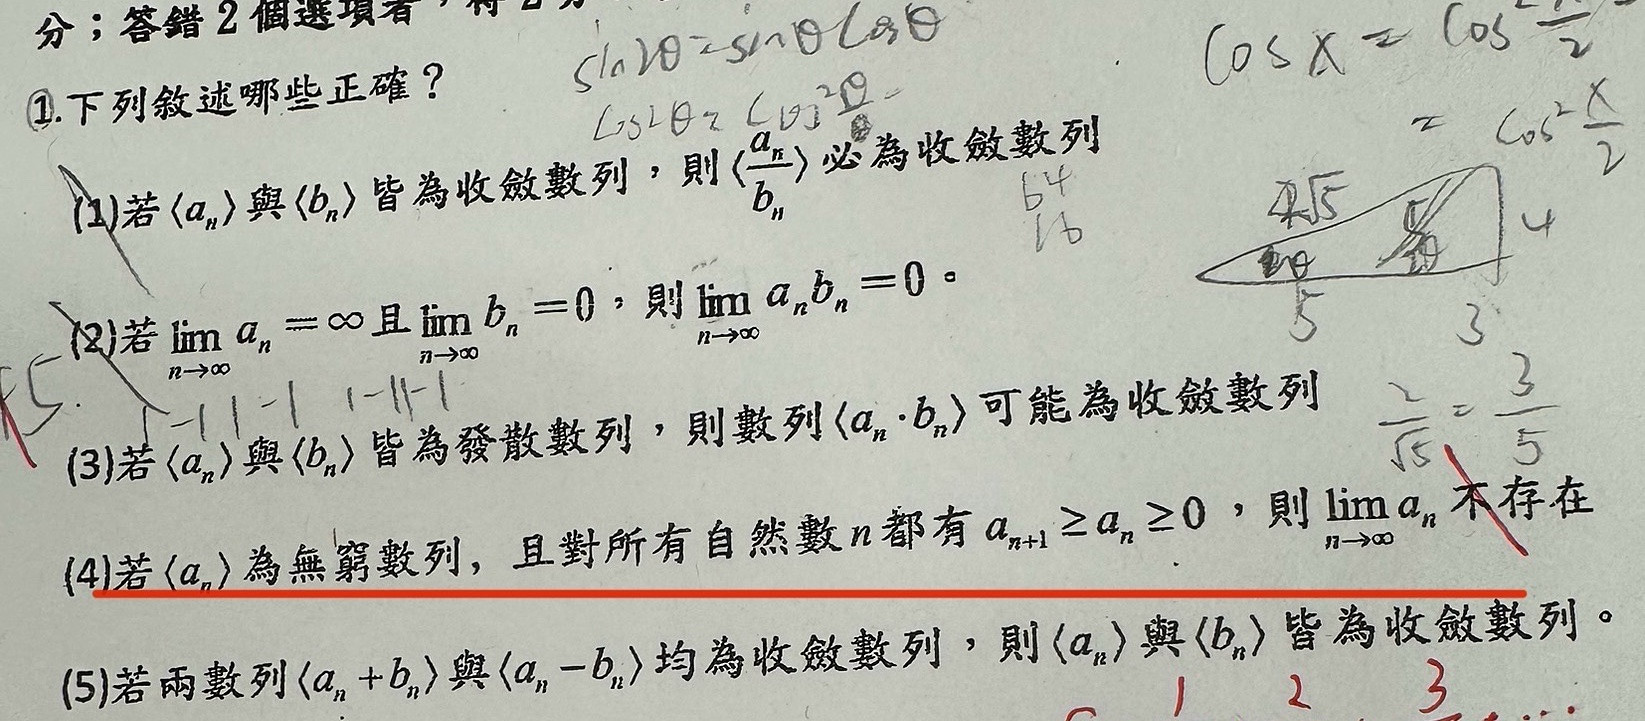 分；答錯2個選項者，得2分
sin2θ=sinθcosθ
cosx=cos²x/2
①.下列敘述哪些正確？
cos2θ=cos²θ-
=cos²x/2
(1)若⟨aₙ⟩與⟨bₙ⟩皆為收斂數列，則⟨aₙ/bₙ⟩必為收斂數列
64
16
4
5
3
(2)若 lim_{n→∞} aₙ=∞且 lim_{n→∞} bₙ=0，則 lim_{n→∞} aₙbₙ=0。
1-11-1 1-11-1
2/√5=3/5
(3)若⟨aₙ⟩與⟨bₙ⟩皆為發散數列，則數列⟨aₙ·bₙ⟩可能為收斂數列
(4)若⟨aₙ⟩為無窮數列，且對所有自然數n都有aₙ₊₁≥aₙ≥0，則 lim_{n→∞} aₙ不存在
(5)若兩數列⟨aₙ+bₙ⟩與⟨aₙ-bₙ⟩均為收斂數列，則⟨aₙ⟩與⟨bₙ⟩皆為收斂數列。
1 2 3